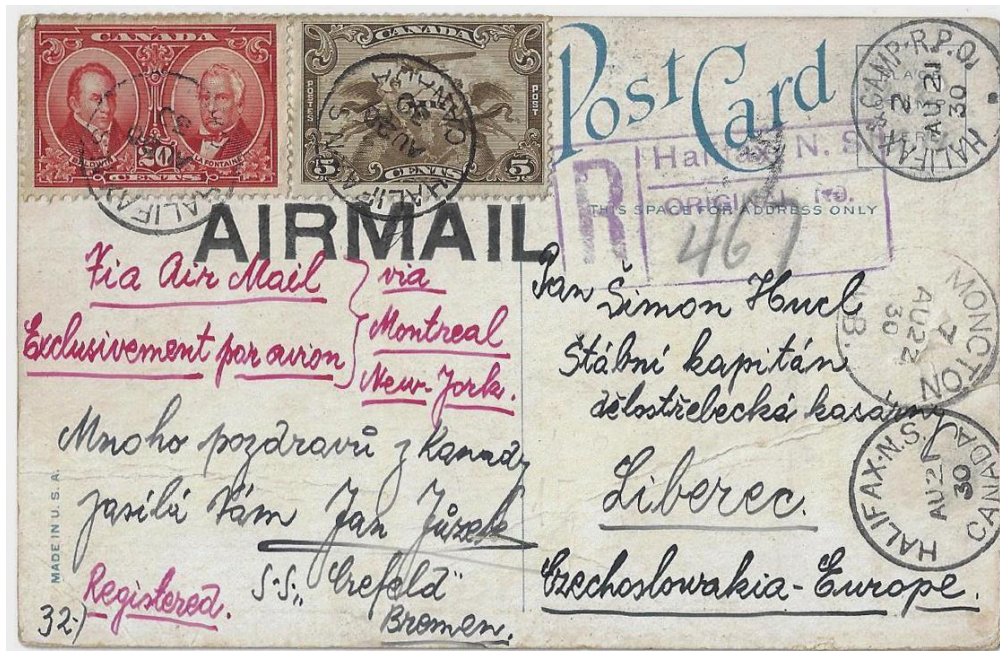 CANADA
20 20
BALDWIN LAFONTAINE
CENTS
CANADA
POSTES POST
5 CENTS 5
HALIFAX
HALIFAX N.S.
AU 20
30
CANADA
Post Card
HALIFAX & CAMP. R.P.O.
2
AU 21
30
R
Halifax, N. S.
ORIGINAL No.
467
THIS SPACE FOR ADDRESS ONLY
AIRMAIL
Via Air Mail
Exclusivement par avion
via
Montreal
New-York.
Mnoho pozdravů z Kanady
zasílá Vám Jan
S.S. „Crefeld"
Bremen.
Registered.
32.)
MADE IN U.S.A.
Pan Šimon Hucl
Štábní kapitán
dělostřelecká kasárny
Liberec.
Czechoslowakia - Europe.
MONCTON
7
AU 22
30
N.B.
HALIFAX. N.S.
AU 21
30
CANADA